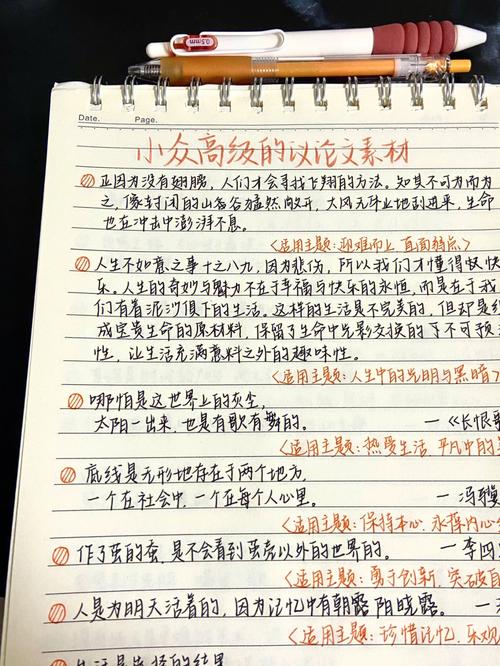 0.5mm
Date. Page.
小众高级的议论文素材
正因为没有翅膀,人们才会寻找飞翔的方法。知其不可为而为
之,像封闭的山谷猛然敞开,大风无休止地刮进来,生命
也在冲击中澎湃不息。
<适用主题:迎难而上 直面弱点>
人生不如意之事十之八九,因为悲伤,所以我们才懂得欢快
乐。人生的奇妙与魅力不在于幸福与快乐的永恒,而是在于我
们有着泥沙俱下的生活。这样的生活是不完美的,但却是组
成宝贵生命的原材料,保留了生命中光影交换的了不可预
性,让生活充满意料之外的趣味性。
<适用主题:人生中的光明与黑暗>
哪怕是这世界上的灰尘,
太阳一出来,也是有歌有舞的。 —《长恨歌
<适用主题:热爱生活 平凡中的
底线是无形地存在于两个地方,
一个在社会中,一个在每个人心里。 —冯骥
<适用主题:保持本心,永葆内心
作了茧的蚕,是不会看到茧壳以外的世界的。 —李四
<适用主题:勇于创新,突破自
人是为明天活着的,因为记忆中有朝露阳晓露。 —
<适用主题:珍惜记忆,乐观
生活是选择的结果